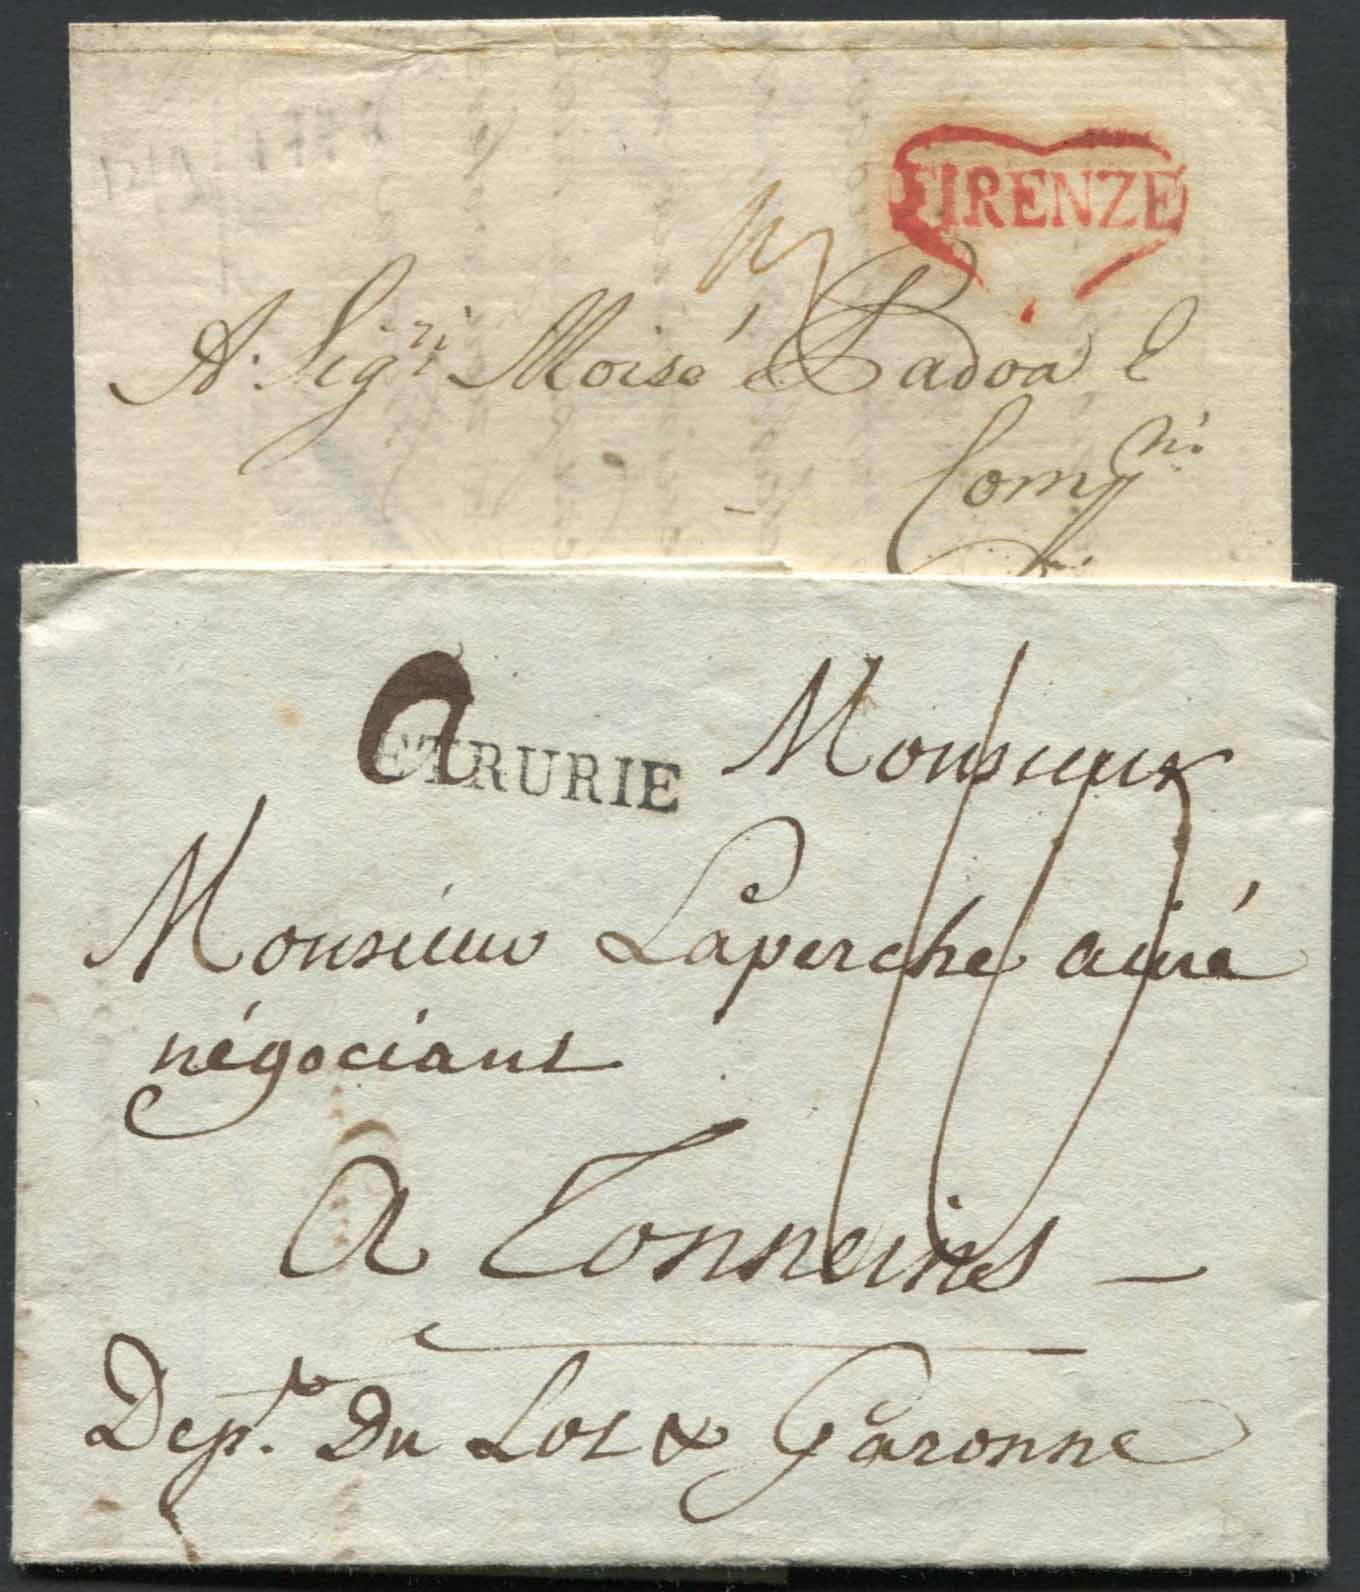 FIRENZE
A. Sig.ri Moisé Padoa e
Comp.ni
ETRURIE
Monsieur
Monsieur Laperche ainé
négociant
A Tonneins
Dep.t Du Lot & Garonne